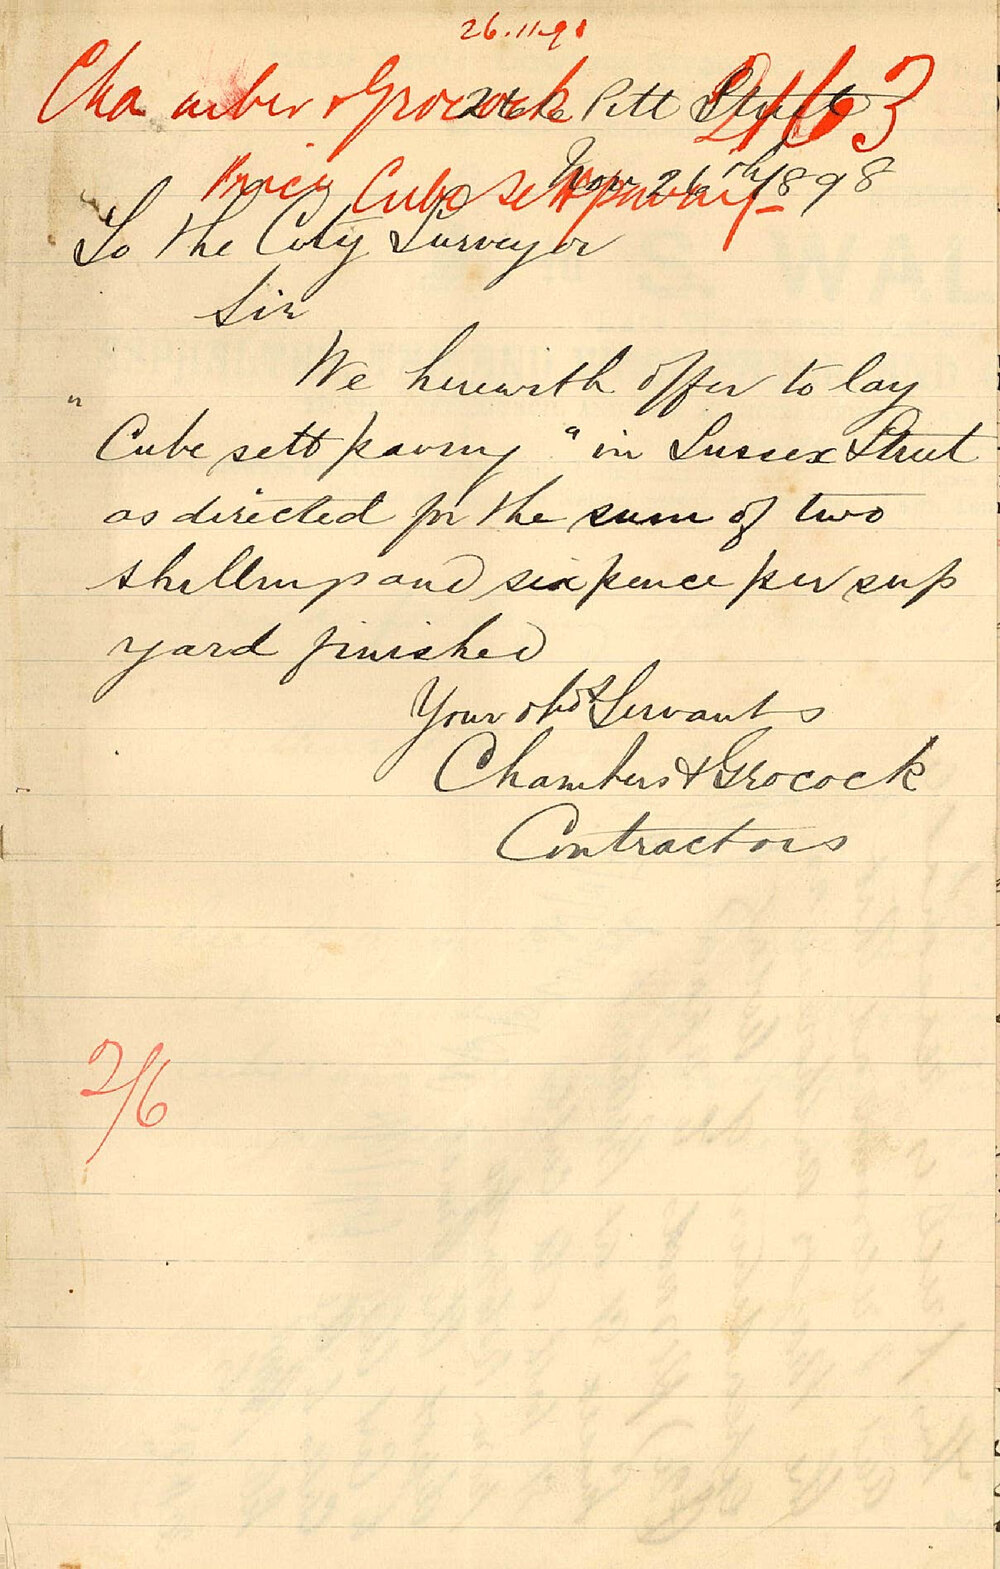 26.11.98
Chamber & Grocock 2163
266 Pitt Street
Price Cube sett paving
Nov 26th 1898
To the City Surveyor
Sir
We herewith offer to lay
"Cube sett paving" in Sussex Street
as directed for the sum of two
shillings and sixpence per sup
yard finished
Your obdt Servants
Chambers & Grocock
Contractors
2/6